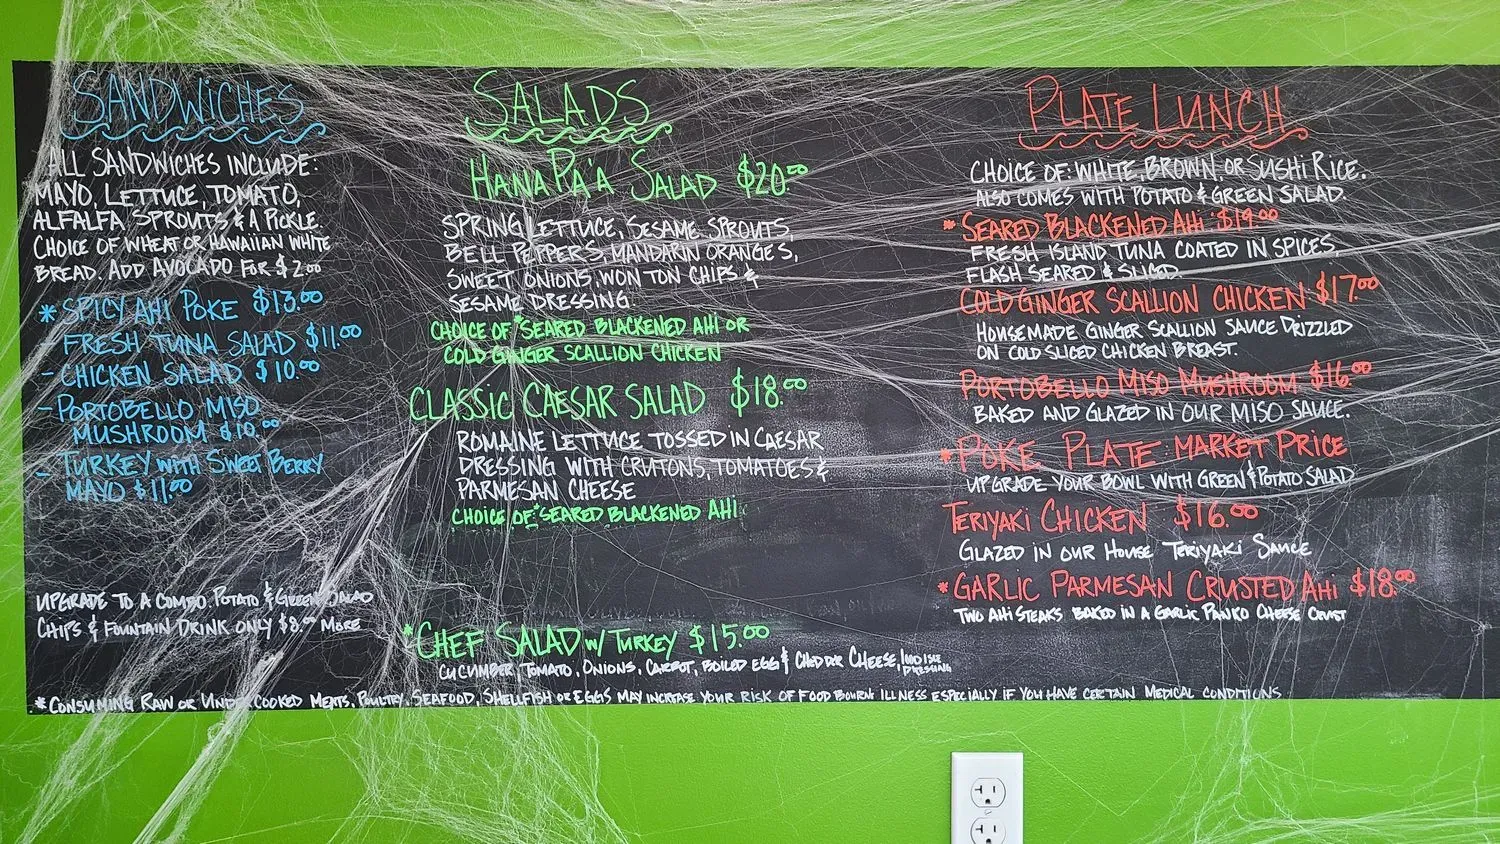 SANDWiCHES
ALL SANDWICHES INCLUDE:
MAYO, LETTUCE, TOMATO,
ALFALFA SPROUTS & A PICKLE.
CHOICE OF WHEAT OR HAWAIIAN WHITE
BREAD. ADD AVOCADO FOR $2.00
* SPICY AHI POKE $13.00
FRESH TUNA SALAD $11.00
- CHICKEN SALAD $10.00
- PORTOBELLO MISO
MUSHROOM $10.00
- TURKEY WITH SWEET BERRY
MAYO $11.00
UPGRADE TO A COMBO: POTATO & GREEN SALAD
CHIPS & FOUNTAIN DRINK ONLY $8.00 MORE
SALADS
HANA PA'A SALAD $20.00
SPRING LETTUCE, SESAME SPROUTS,
BELL PEPPERS, MANDARIN ORANGE'S,
SWEET ONIONS, WON TON CHIPS &
SESAME DRESSING.
CHOICE OF *SEARED BLACKENED AHI OR
COLD GINGER SCALLION CHICKEN
CLASSIC CAESAR SALAD $18.00
ROMAINE LETTUCE TOSSED IN CAESAR
DRESSING WITH CRUTONS, TOMATOES &
PARMESAN CHEESE
CHOICE OF: *SEARED BLACKENED AHI
*CHEF SALAD W/ TURKEY $15.00
CUCUMBER, TOMATO, ONIONS, CARROT, BOILED EGG & CHEDDER CHEESE,
DRESSING
PLATE LUNCH
CHOICE OF: WHITE, BROWN, OR SUSHI RICE.
ALSO COMES WITH POTATO & GREEN SALAD.
* SEARED BLACKENED AHI $19.00
FRESH ISLAND TUNA COATED IN SPICES,
FLASH SEARED & SLICED.
COLD GINGER SCALLION CHICKEN $17.00
HOUSEMADE GINGER SCALLION SAUCE DRIZZLED
ON COLD SLICED CHICKEN BREAST.
PORTOBELLO MISO MUSHROOM $16.00
BAKED AND GLAZED IN OUR MISO SAUCE.
* POKE PLATE: MARKET PRICE
UPGRADE YOUR BOWL WITH GREEN & POTATO SALAD
TERIYAKI CHICKEN $16.00
GLAZED IN OUR HOUSE TERIYAKI SAUCE
* GARLIC PARMESAN CRUSTED AHI $18.00
TWO AHI STEAKS BAKED IN A GARLIC PANKO CHEESE CRUST
* CONSUMING RAW OR UNDERCOOKED MEATS, POULTRY, SEAFOOD, SHELLFISH OR EGGS MAY INCREASE YOUR RISK OF FOOD BOURNE ILLNESS ESPECIALLY IF YOU HAVE CERTAIN MEDICAL CONDITIONS